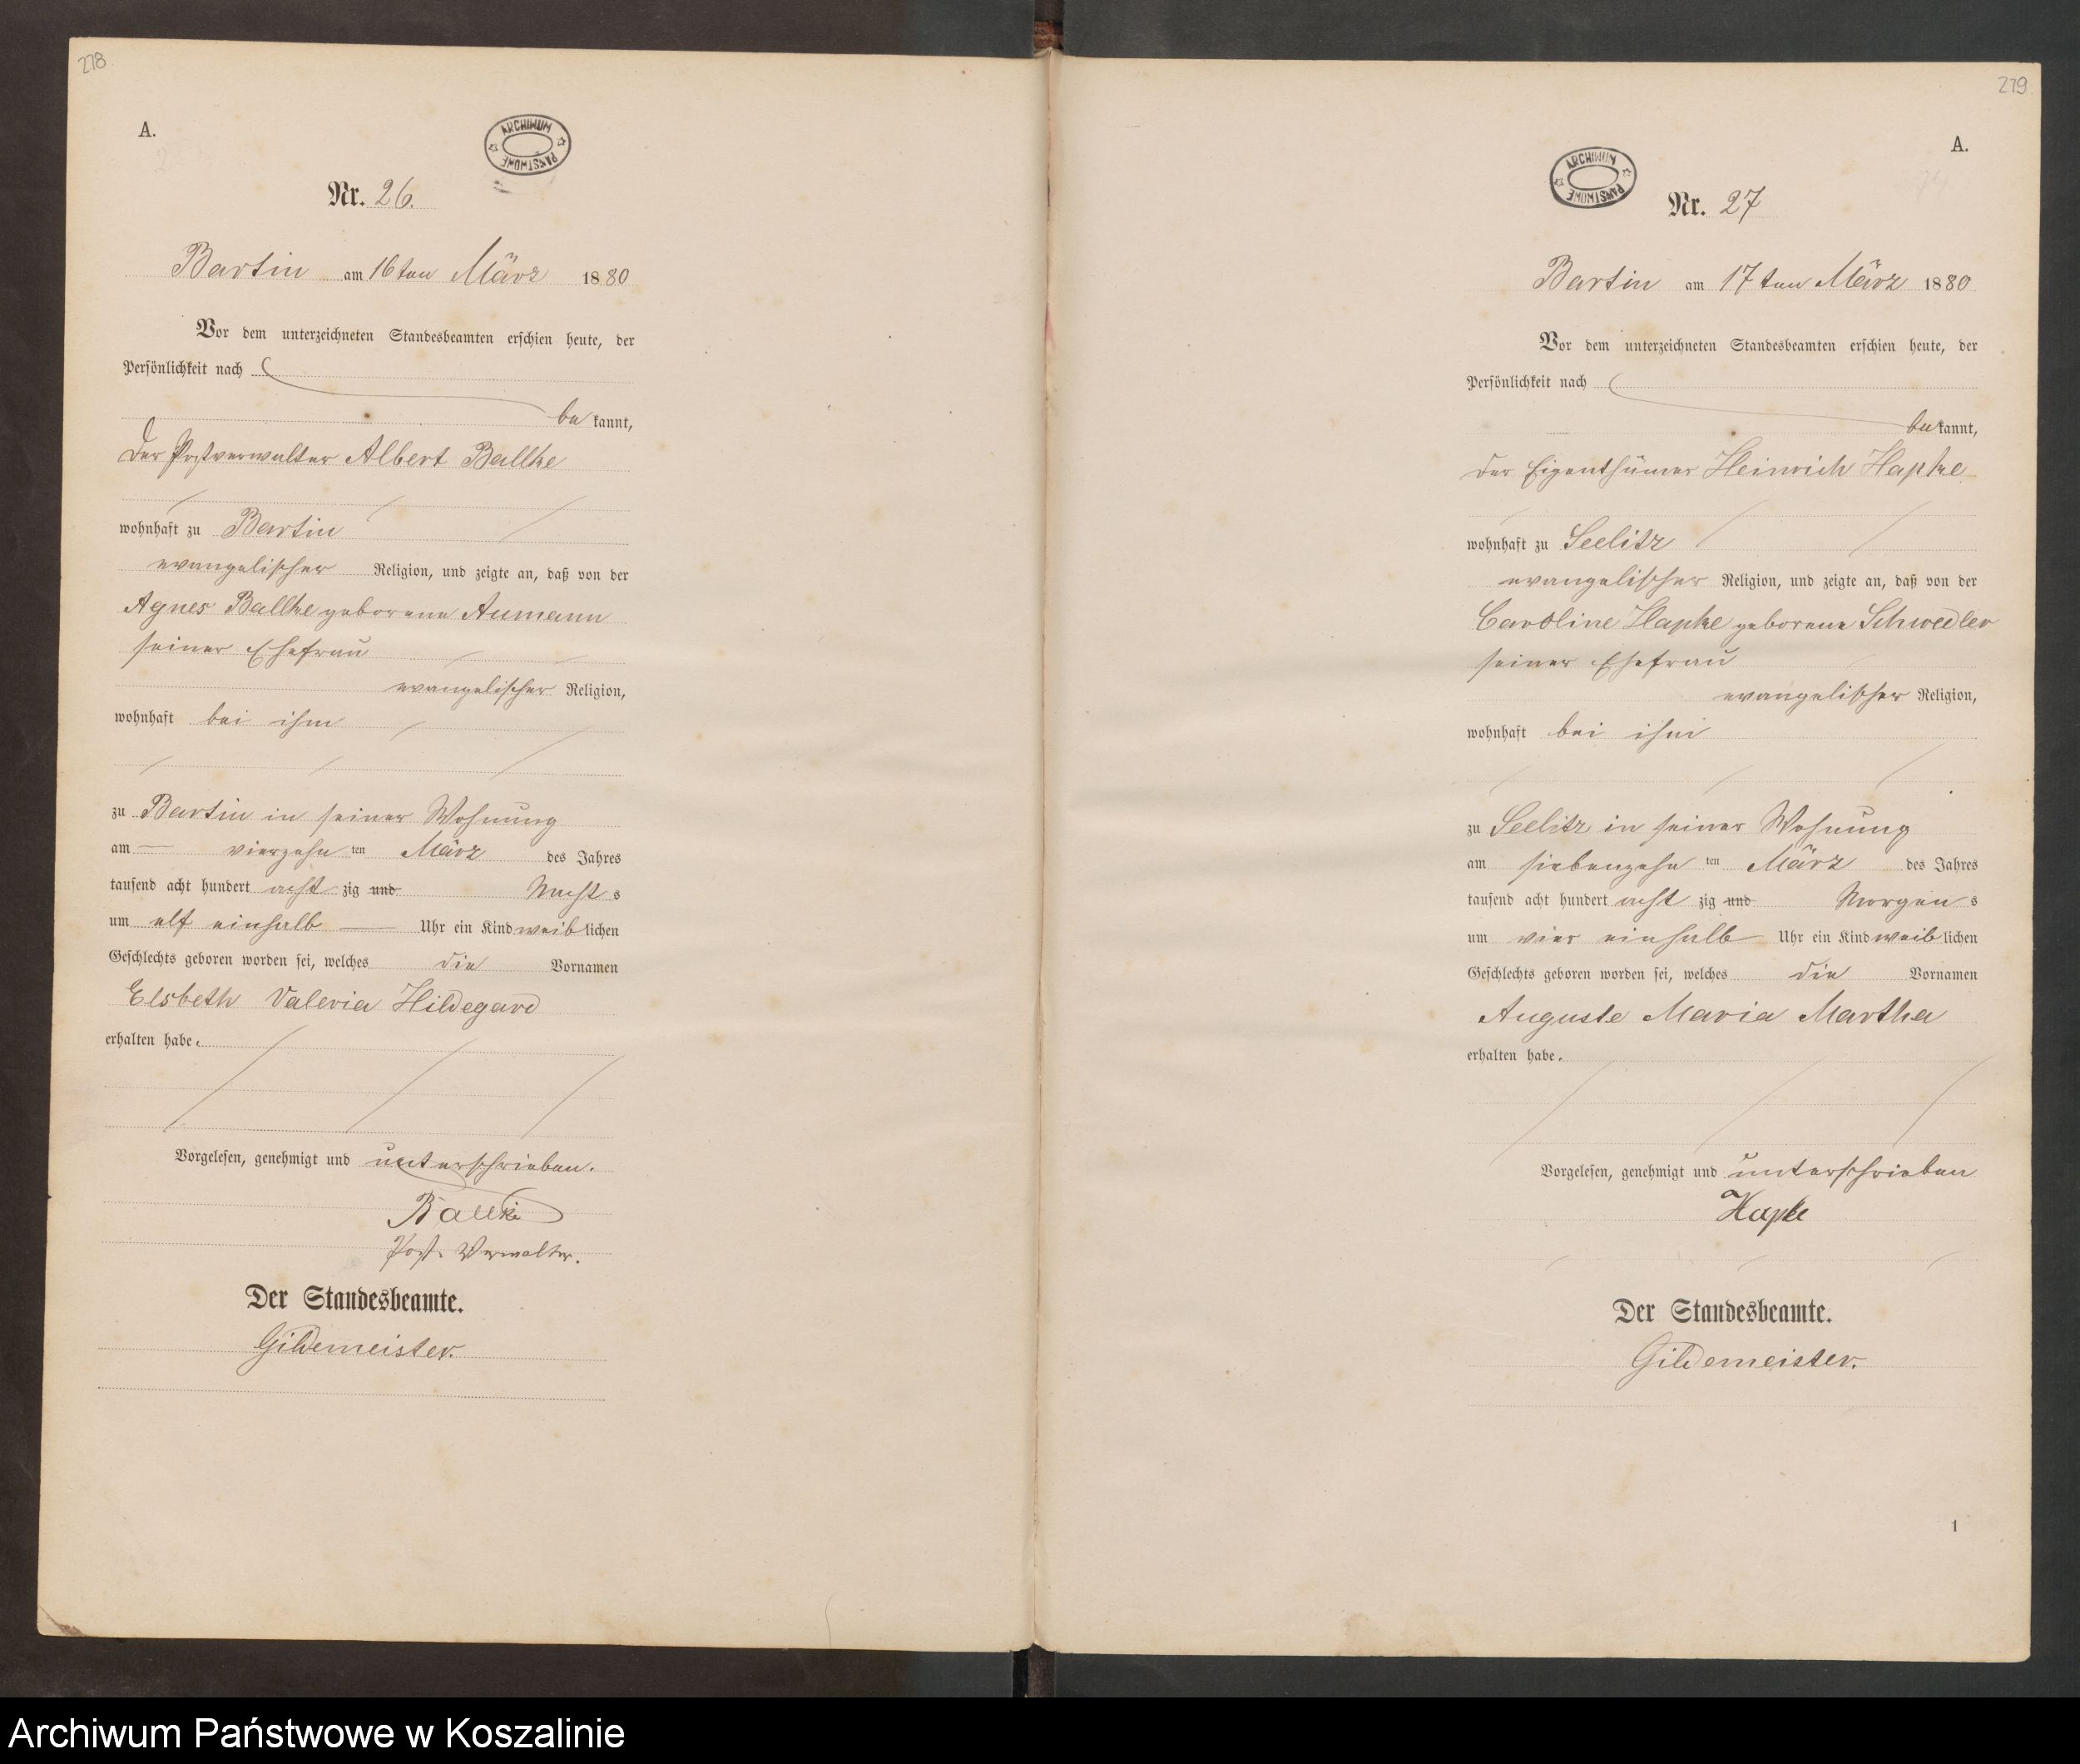 278
A.
ARCHIWUM PAŃSTWOWE
Nr. 26.
Bartin am 16ten März 1880
Vor dem unterzeichneten Standesbeamten erschien heute, der
Persönlichkeit nach
be kannt,
der Postverwalter Albert Ballke
wohnhaft zu Bartin
evangelischer Religion, und zeigte an, daß von der
Agnes Ballke geborene Aumann
seiner Ehefrau
evangelischer Religion,
wohnhaft bei ihm
zu Bartin in seiner Wohnung
am vierzehn ten März des Jahres
tausend acht hundert acht zig und Nacht s
um elf einhalb Uhr ein Kind weib lichen
Geschlechts geboren worden sei, welches die Vornamen
Elsbeth Valeria Hildegard
erhalten habe.
Vorgelesen, genehmigt und unterschrieben.
Ballke
Post-Verwalter.
Der Standesbeamte.
Gildemeister.
279
A.
ARCHIWUM PAŃSTWOWE
Nr. 27
Bartin am 17ten März 1880
Vor dem unterzeichneten Standesbeamten erschien heute, der
Persönlichkeit nach
be kannt,
der Eigenthümer Heinrich Hapke
wohnhaft zu Seelitz
evangelischer Religion, und zeigte an, daß von der
Caroline Hapke geborene Schwedler
seiner Ehefrau
evangelischer Religion,
wohnhaft bei ihm
zu Seelitz in seiner Wohnung
am siebenzehn ten März des Jahres
tausend acht hundert acht zig und Morgen s
um vier einhalb Uhr ein Kind weib lichen
Geschlechts geboren worden sei, welches die Vornamen
Auguste Maria Martha
erhalten habe.
Vorgelesen, genehmigt und unterschrieben
Hapke
Der Standesbeamte.
Gildemeister.
1
Archiwum Państwowe w Koszalinie